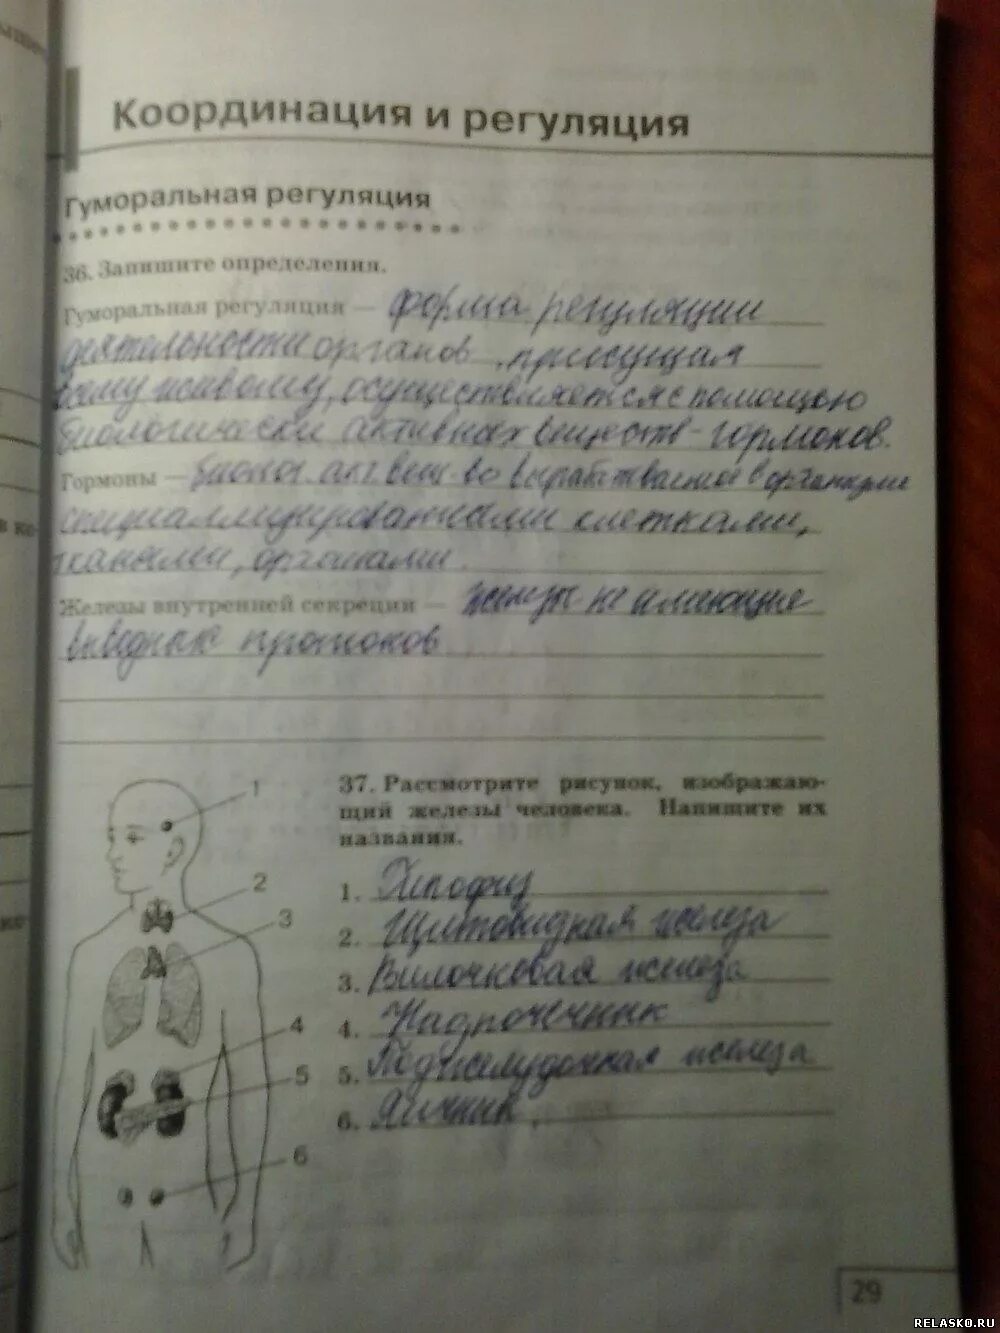 Координация и регуляция
Гуморальная регуляция
36. Запишите определения.
Гуморальная регуляция — форма регуляции
деятельности органов, присущая
всему живому, осуществляется с помощью
биологически активных веществ - гормонов.
Гормоны — биолог. акт. вещ-во вырабатываемое в организме
специализированными клетками,
тканями, органами.
Железы внутренней секреции — железы не имеющие
выводных протоков
37. Рассмотрите рисунок, изображаю-
щий железы человека. Напишите их
названия.
1. Гипофиз
2. Щитовидная железа
3. Вилочковая железа
4. Надпочечник
5. Поджелудочная железа
6. Яичник.
1
2
3
4
5
6
29
RELASKO.RU